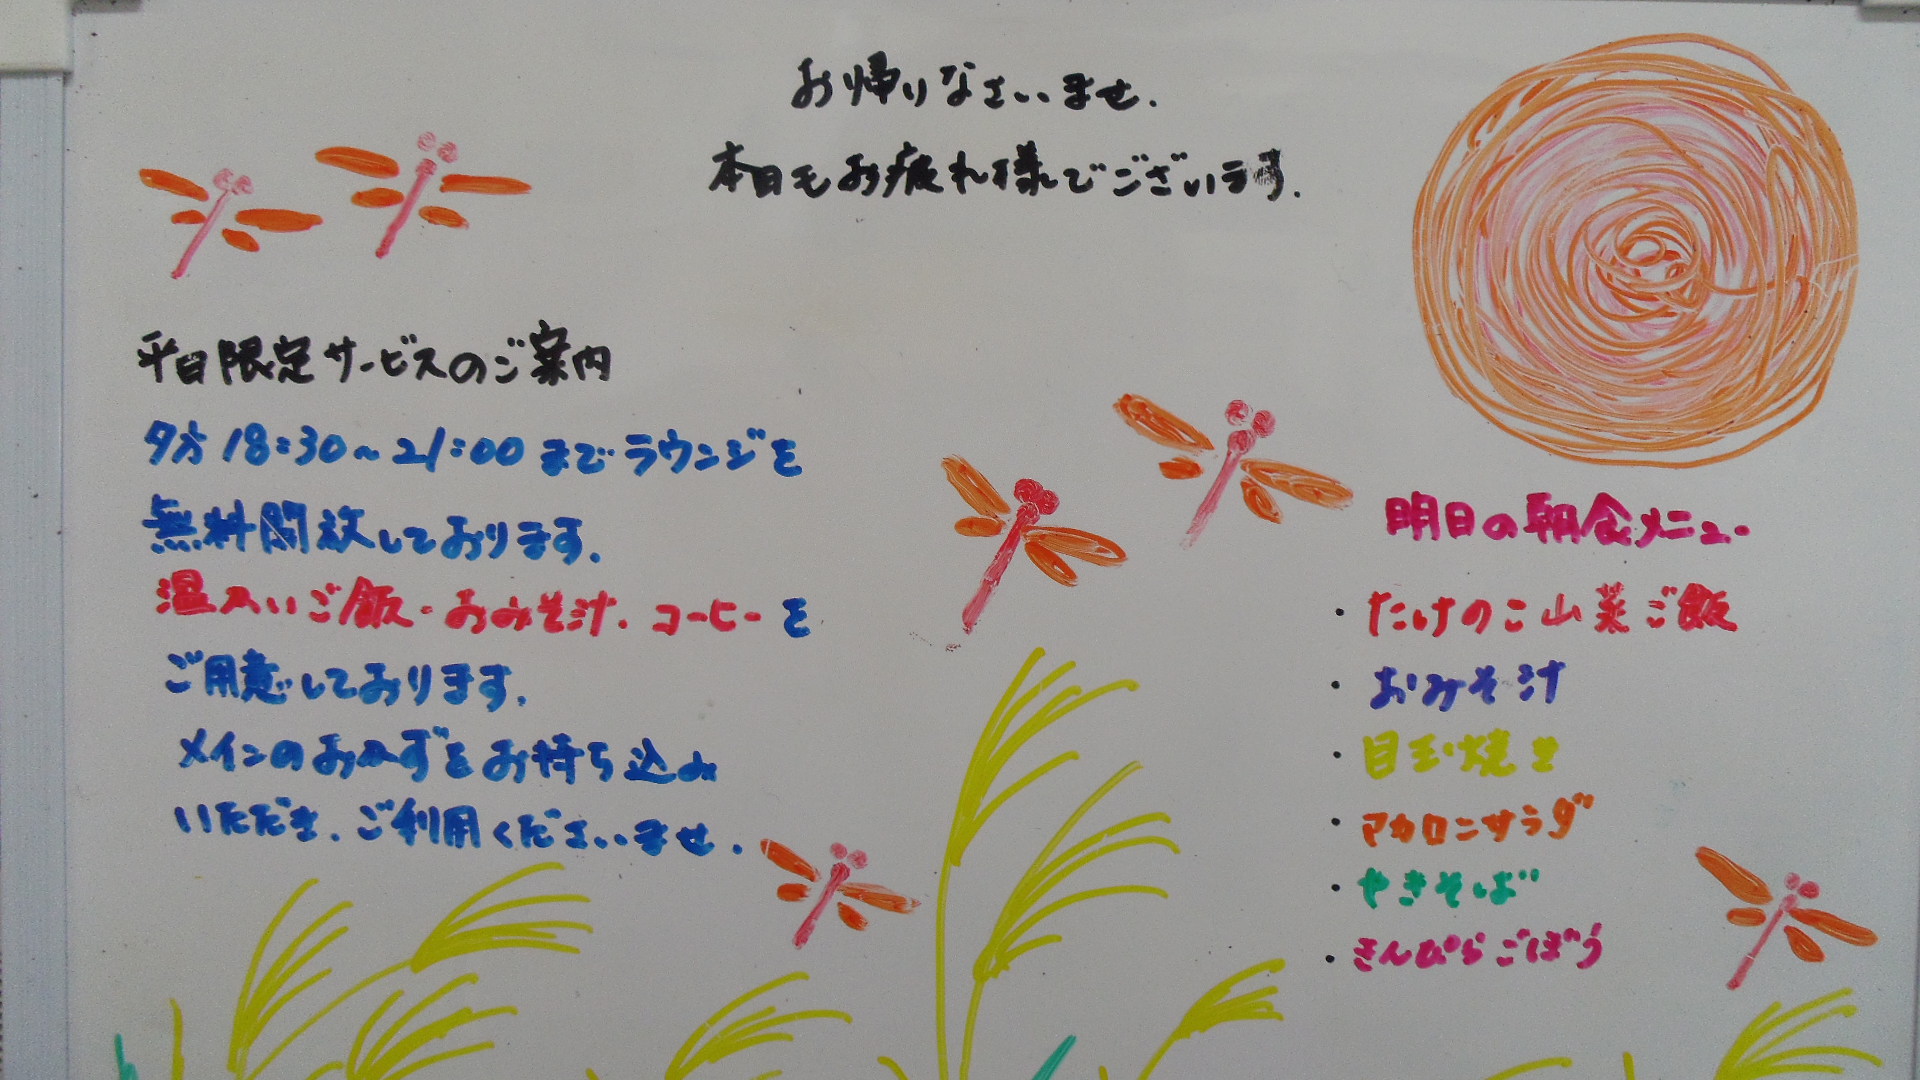 お帰りなさいませ.
本日もお疲れ様でございます.
平日限定サービスのご案内
夕方18:30～21:00までラウンジを
無料開放しております.
温かいご飯・おみそ汁.コーヒーを
ご用意しております.
メインのおかずをお持ち込み
いただき.ご利用くださいませ.
明日の朝食メニュー
・たけのこ山菜ご飯
・おみそ汁
・目玉焼き
・マカロニサラダ
・やきそば
・きんぴらごぼう